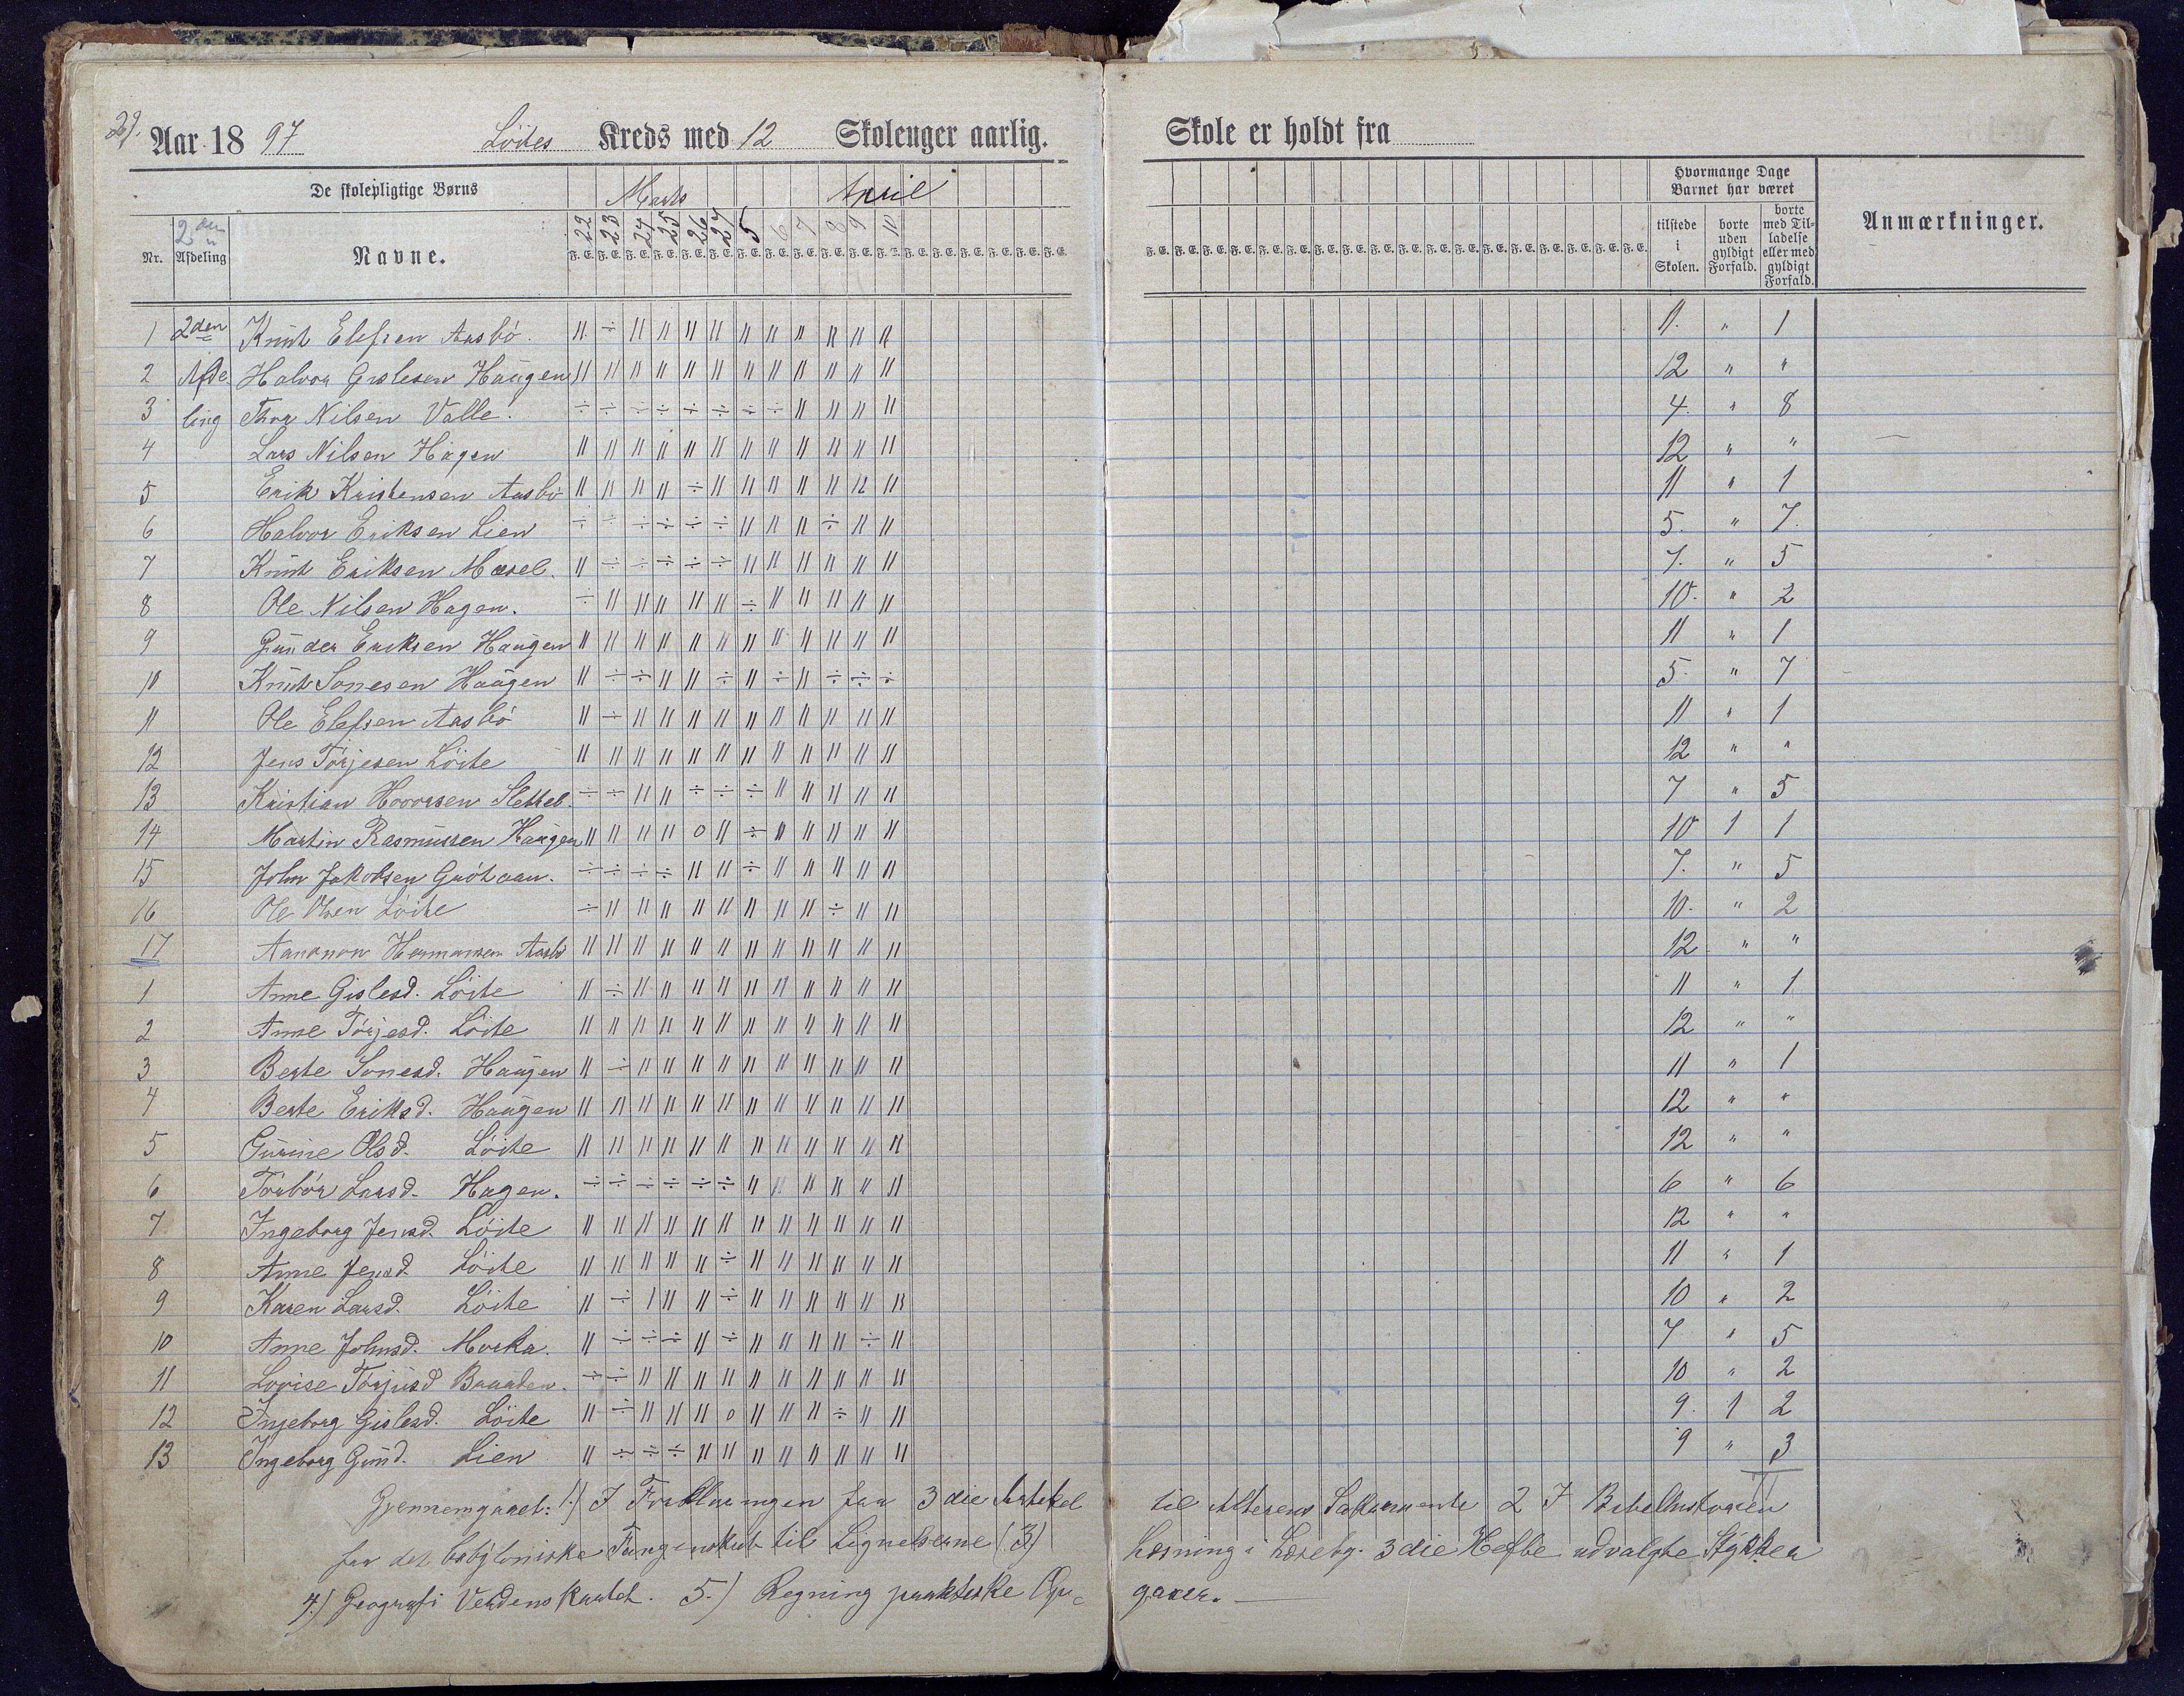 29. Aar 1897 Löites Kreds med 12 Skolenger aarlig. Skole er holdt fra
De skolepligtige Børns Marts April Hvormange Dage Barnet har været Anmærkninger.
Nr. 2den Afdeling Navne. 22 23 24 25 26 27 5 6 7 8 9 10 tilstede i Skolen. borte uden gyldigt Forfald. borte med Tilladelse eller med gyldigt Forfald.
F. E. F. E. F. E. F. E. F. E. F. E. F. E. F. E. F. E. F. E. F. E. F. E. F. E. F. E. F. E. F. E. F. E. F. E.
1 2den Knut Elefsen Aasbö. 〃 ÷ 〃 〃 〃 〃 〃 〃 〃 〃 〃 〃 11. " 1
2 Afde Halvor Gislesen Haugen 〃 〃 〃 〃 〃 〃 〃 〃 〃 〃 〃 〃 12 " "
3 ling Thor Nilsen Valle. ÷ ÷ ÷ ÷ ÷ ÷ ÷ ÷ 〃 〃 〃 〃 4. " 8
4 Lars Nilsen Hagen 〃 〃 〃 〃 〃 〃 〃 〃 〃 〃 〃 〃 12 " "
5 Erik Kristensen Aasbö 〃 〃 〃 〃 ÷ 〃 〃 〃 〃 〃 〃 〃 11 " 1
6 Halvor Eriksen Lien ÷ ÷ ÷ ÷ ÷ ÷ 〃 〃 〃 ÷ 〃 〃 5. " 7.
7 Knut Eriksen Mæsel. 〃 ÷ ÷ ÷ ÷ ÷ 〃 〃 〃 〃 〃 〃 7. " 5
8 Ole Nilsen Hagen. ÷ 〃 〃 〃 〃 〃 ÷ 〃 〃 〃 〃 〃 10. " 2
9 Gunder Eriksen Haugen 〃 〃 〃 〃 〃 〃 〃 〃 〃 〃 〃 〃 11 " 1
10 Knut Sonesen Haugen 〃 ÷ ÷ 〃 〃 ÷ 〃 ÷ 〃 ÷ ÷ ÷ 5. " 7
11 Ole Elefsen Aasbö 〃 ÷ 〃 〃 〃 〃 〃 〃 〃 〃 〃 〃 11 " 1
12 Jens Törjesen Löite 〃 〃 〃 〃 〃 〃 〃 〃 〃 〃 〃 〃 12 " "
13 Kristian Hovorsen Sletteb. ÷ ÷ 〃 〃 ÷ ÷ ÷ 〃 〃 〃 〃 〃 7 " 5
14 Martin Rasmussen Haugen 〃 〃 〃 〃 0 〃 ÷ 〃 〃 〃 〃 〃 10 1 1
15 John Jakobsen ÷ ÷ ÷ ÷ 〃 〃 ÷ 〃 〃 〃 〃 〃 7. " 5
16 Ole Olsen Löite ÷ 〃 〃 〃 〃 〃 〃 〃 〃 ÷ 〃 〃 10. " 2
17 Aananon Hermansen Aasbö 〃 〃 〃 〃 〃 〃 〃 〃 〃 〃 〃 〃 12 " "
1 Anne Gislesd. Löite 〃 ÷ 〃 〃 〃 〃 〃 〃 〃 〃 〃 〃 11 " 1
2 Anne Törjesd. Löite 〃 〃 〃 〃 〃 〃 〃 〃 〃 〃 〃 〃 12 " "
3 Berte Sonesd. Haugen 〃 ÷ 〃 〃 〃 〃 〃 〃 〃 〃 〃 〃 11 " 1
4 Berte Eriksd. Haugen 〃 〃 〃 〃 〃 〃 〃 〃 〃 〃 〃 〃 12 " "
5 Gurine Olsd. Löite 〃 〃 〃 〃 〃 〃 〃 〃 〃 〃 〃 〃 12 " "
6 Torbör Larsd. Hagen. ÷ ÷ ÷ ÷ ÷ ÷ 〃 〃 〃 〃 〃 〃 6 " 6
7 Ingeborg Jensd. Löite 〃 〃 〃 〃 〃 〃 〃 〃 〃 〃 〃 〃 12 " "
8 Anne Jensd. Löite 〃 〃 〃 〃 〃 ÷ 〃 〃 〃 〃 〃 〃 11 " 1
9 Karen Larsd. Löite 〃 ÷ 〃 〃 〃 ÷ 〃 〃 〃 〃 〃 〃 10 " 2
10 Anne Johnsd. Morka. 〃 ÷ ÷ ÷ 〃 ÷ 〃 〃 〃 〃 ÷ 〃 7 " 5
11 Lovise Törjusd ÷ ÷ 〃 〃 〃 〃 〃 〃 〃 〃 〃 〃 10 " 2
12 Ingeborg Gislesd. Löite 〃 ÷ 〃 〃 〃 0 〃 〃 〃 ÷ 〃 〃 9. 1 2
13 Ingeborg Gund. Lien 〃 ÷ ÷ ÷ 〃 〃 〃 〃 〃 〃 〃 〃 9 " 3
Gjennemgaaet: 1.) I Forklaringen fra 3die Artikel til Alterens Sakramente 2 I Bibelhistorien
fra det babyloniske Fangenskab til Lignelserne (3) Læsning i Læsebg. 3die Hefte udvalgte Stykker
4.) Geografi Verdenskartet. 5.) Regning praktiske Opgaver. —